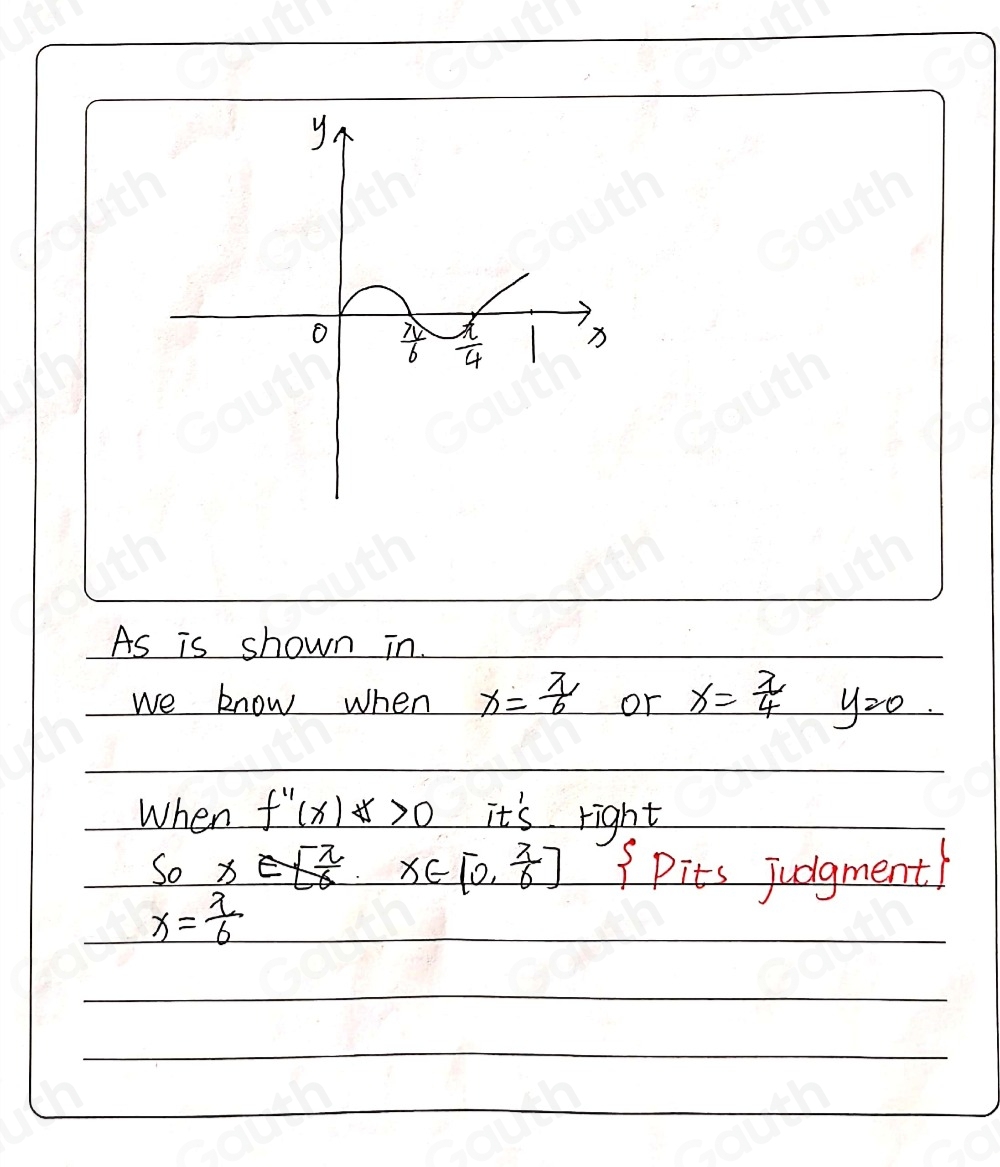 y
0 π/6 π/4 1 x
As is shown in.
we know when x = π/6 or x = π/4 y=0.
When f"(x) >0 it's right
So x ∈ [π/6. x∈[0, π/6] {Pits judgment}
x = π/6